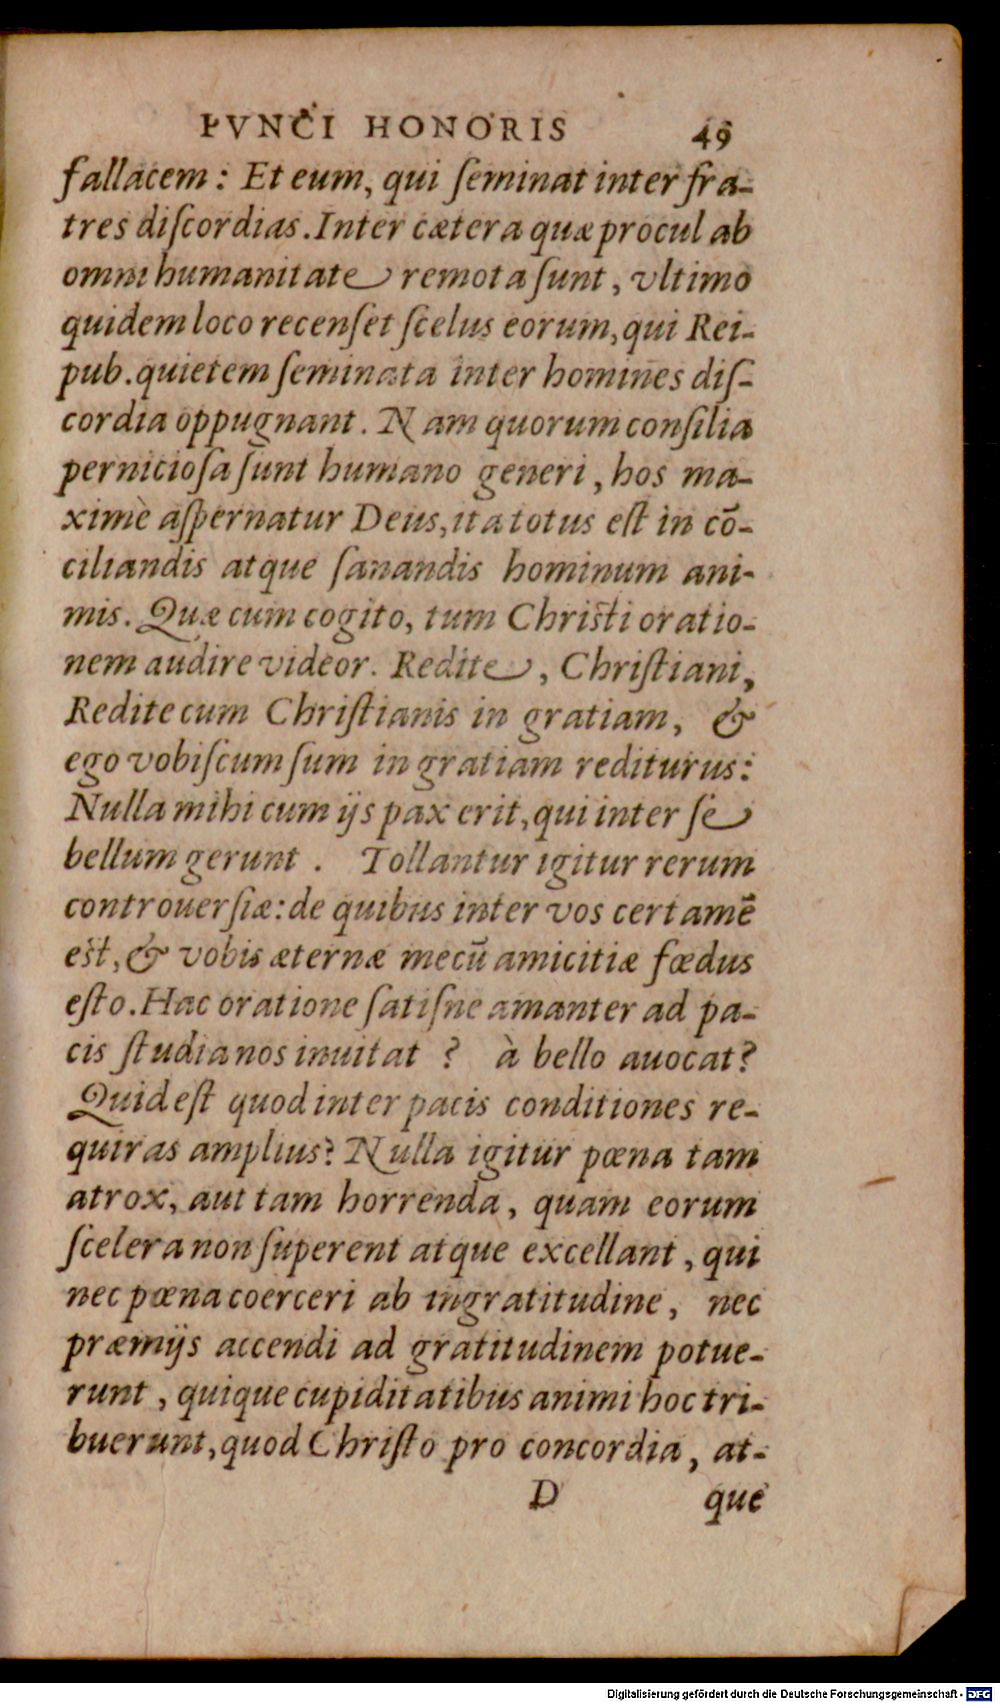 PVNCTI HONORIS 49
fallacem: Et eum, qui ſeminat inter fra-
tres diſcordias. Inter cætera quæ procul ab
omni humanitate remota ſunt, vltimo
quidem loco recenſet ſcelus eorum, qui Rei-
pub. quietem ſeminata inter homines diſ-
cordia oppugnant. Nam quorum conſilia
pernicioſa ſunt humano generi, hos ma-
ximè aſpernatur Deus, ita totus eſt in cō-
ciliandis atque ſanandis hominum ani-
mis. Quæ cum cogito, tum Chriſti oratio-
nem audire videor. Redite, Chriſtiani,
Redite cum Chriſtianis in gratiam, &
ego vobiſcum ſum in gratiam rediturus:
Nulla mihi cum ijs pax erit, qui inter ſe
bellum gerunt. Tollantur igitur rerum
controuerſiæ: de quibus inter vos certamē
eſt, & vobis æternæ mecū amicitiæ fœdus
eſto. Hac oratione ſatiſne amanter ad pa-
cis ſtudia nos inuitat? à bello auocat?
Quid eſt quod inter pacis conditiones re-
quiras amplius? Nulla igitur pœna tam
atrox, aut tam horrenda, quam eorum
ſcelera non ſuperent atque excellant, qui
nec pœna coerceri ab ingratitudine, nec
præmijs accendi ad gratitudinem potue-
runt, quique cupiditatibus animi hoc tri-
buerunt, quod Chriſto pro concordia, at-
D que
Digitalisierung gefördert durch die Deutsche Forschungsgemeinschaft - DFG